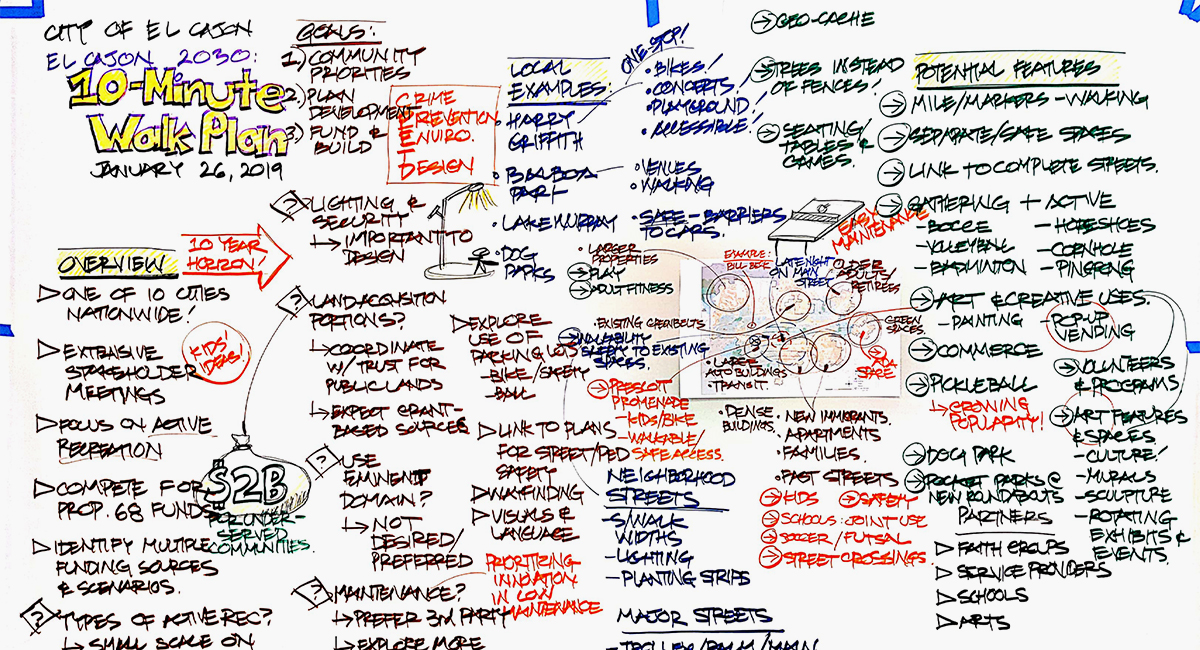 CITY OF EL CAJON
EL CAJON 2030:
10-Minute
Walk Plan
JANUARY 26, 2019
GOALS:
1.) COMMUNITY
PRIORITIES
2.) PLAN
DEVELOPMENT
3.) FUND &
BUILD
CRIME
PREVENTION
ENVIRO.
DESIGN
OVERVIEW
10 YEAR
HORIZON!
ONE OF 10 CITIES
NATIONWIDE!
KIDS'
IDEAS!
EXTENSIVE
STAKEHOLDER
MEETINGS
FOCUS ON ACTIVE
RECREATION
COMPETE FOR
PROP. 68 FUNDS
$2B
FOR UNDER-
SERVED
COMMUNITIES.
IDENTIFY MULTIPLE
FUNDING SOURCES
& SCENARIOS.
? TYPES OF ACTIVE REC?
↳ SMALL SCALE ON
? LIGHTING &
SECURITY
↳ IMPORTANT TO
DESIGN
? LAND ACQUISITION
PORTIONS?
↳ COORDINATE
W/ TRUST FOR
PUBLIC LANDS
↳ EXPECT GRANT-
BASED SOURCES
? USE
EMINENT
DOMAIN?
↳ NOT
DESIRED/
PREFERRED
? MAINTENANCE?
↳ PREFER 3RD PARTY
↳ EXPLORE MORE
PRIORITIZING
INNOVATION
IN LOW
MAINTENANCE
EXPLORE
USE OF
PARKING LOTS
-BIKE/SAFETY
-BALL
LINK TO PLANS
FOR STREET/PED
SAFETY
WAYFINDING
VISUALS &
LANGUAGE
LOCAL
EXAMPLES:
• HARRY
GRIFFITH
ONE-STOP!
• BIKES!
• CONCERTS!
• PLAYGROUND!
• ACCESSIBLE!
• BALBOA
PARK
• VENUES
• WALKING
• LAKE MURRAY
• SAFE-BARRIERS
TO CARS.
• DOG
PARKS
• LARGER
PROPERTIES
→ PLAY
→ ADULT FITNESS
• EXISTING GREENBELTS
→ WALKABILITY
SAFETY TO EXISTING
SPACES.
→ PRESCOTT
PROMENADE
-KIDS/BIKE
-WALKABLE/
SAFE ACCESS.
NEIGHBORHOOD
STREETS
-S/WALK
WIDTHS
-LIGHTING
-PLANTING STRIPS
MAJOR STREETS
EXAMPLE:
LATE NIGHT
ON MAIN
STREET
OLDER
ADULTS/
RETIREES
GREEN
SPACES.
SPACE
• LARGE
AUTO BUILDINGS
• TRANSIT.
• DENSE
BUILDINGS.
• NEW IMMIGRANTS.
• APARTMENTS
• FAMILIES.
• FAST STREETS
→ KIDS
→ SAFETY
→ SCHOOLS: JOINT USE
→ SOCCER/FUTSAL
→ STREET CROSSINGS
→ GEO-CACHE
→ TREES INSTEAD
OF FENCES!
→ SEATING/
TABLES &
GAMES.
EASY
MAINTENANCE
POTENTIAL FEATURES
→ MILE/MARKERS-WALKING
→ SEPARATE/SAFE SPACES
→ LINK TO COMPLETE STREETS.
→ GATHERING + ACTIVE
-BOCCE
-VOLLEYBALL
-BADMINTON
-HORSESHOES
-CORNHOLE
-PINGPONG
→ ART & CREATIVE USES.
-PAINTING
-POP-UP
VENDING
→ COMMERCE
→ PICKLEBALL
↳ GROWING
POPULARITY!
→ VOLUNTEERS
& PROGRAMS
→ ART FEATURES
& SPACES
-CULTURE!
-MURALS
-SCULPTURE
-ROTATING
EXHIBITS &
EVENTS.
→ DOG PARK
→ POCKET PARKS @
NEW ROUNDABOUTS
PARTNERS
FAITH GROUPS
SERVICE PROVIDERS
SCHOOLS
ARTS